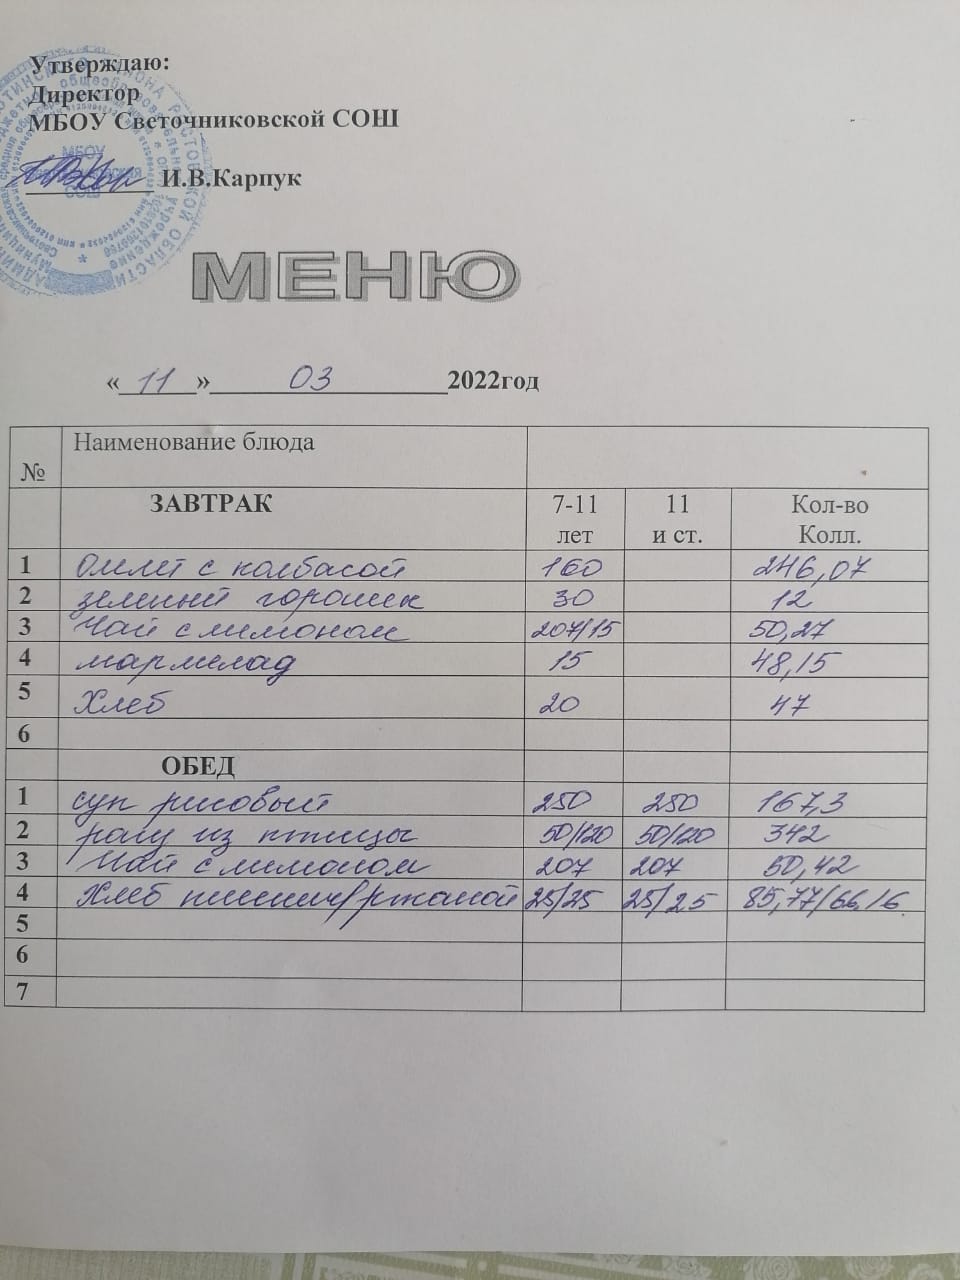 Утверждаю:
Директор
МБОУ Светочниковской СОШ
И.В.Карпук
МБОУ
СОШ
МЕНЮ
« 11 » 03 2022год
№ Наименование блюда
ЗАВТРАК 7-11 лет 11 и ст. Кол-во Колл.
1 Омлет с колбасой 160 246,07
2 зеленый горошек 30 12
3 Чай с лимоном 207/15 50,27
4 мармелад 15 48,15
5 Хлеб 20 47
6
ОБЕД
1 суп рисовый 250 250 167,3
2 рагу из птицы 50/120 50/120 342
3 Чай с лимоном 207 207 50,42
4 Хлеб пшенич/ржаной 25/25 25/25 85,77/66,16
5
6
7